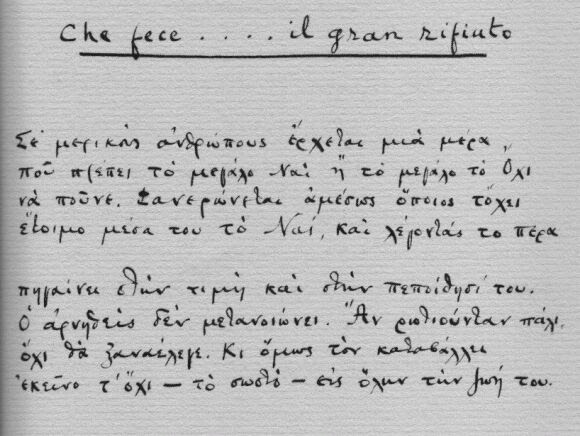 Che fece .... il gran rifiuto
Σὲ μερικοὺς ἀνθρώπους ἔρχεται μιὰ μέρα
ποῦ πρέπει τὸ μεγάλο Ναὶ ἢ τὸ μεγάλο τὸ Ὄχι
νὰ ποῦνε. Φανερώνεται ἀμέσως ὅποιος τὄχει
ἕτοιμο μέσα του τὸ Ναί, καὶ λέγοντάς το πέρα
πηγαίνει στὴν τιμὴ καὶ στὴν πεποίθησί του.
Ὁ ἀρνηθεὶς δὲν μετανοιώνει. Ἂν ρωτιοῦνταν πάλι,
ὄχι θὰ ξαναέλεγε. Κι ὅμως τὸν καταβάλλει
ἐκεῖνο τ' ὄχι — τὸ σωστὸ — εἰς ὅλην τὴν ζωή του.